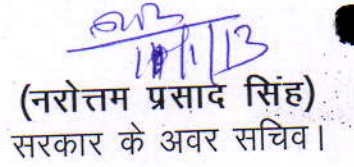 11/1/13
(नरोत्तम प्रसाद सिंह)
सरकार के अवर सचिव।